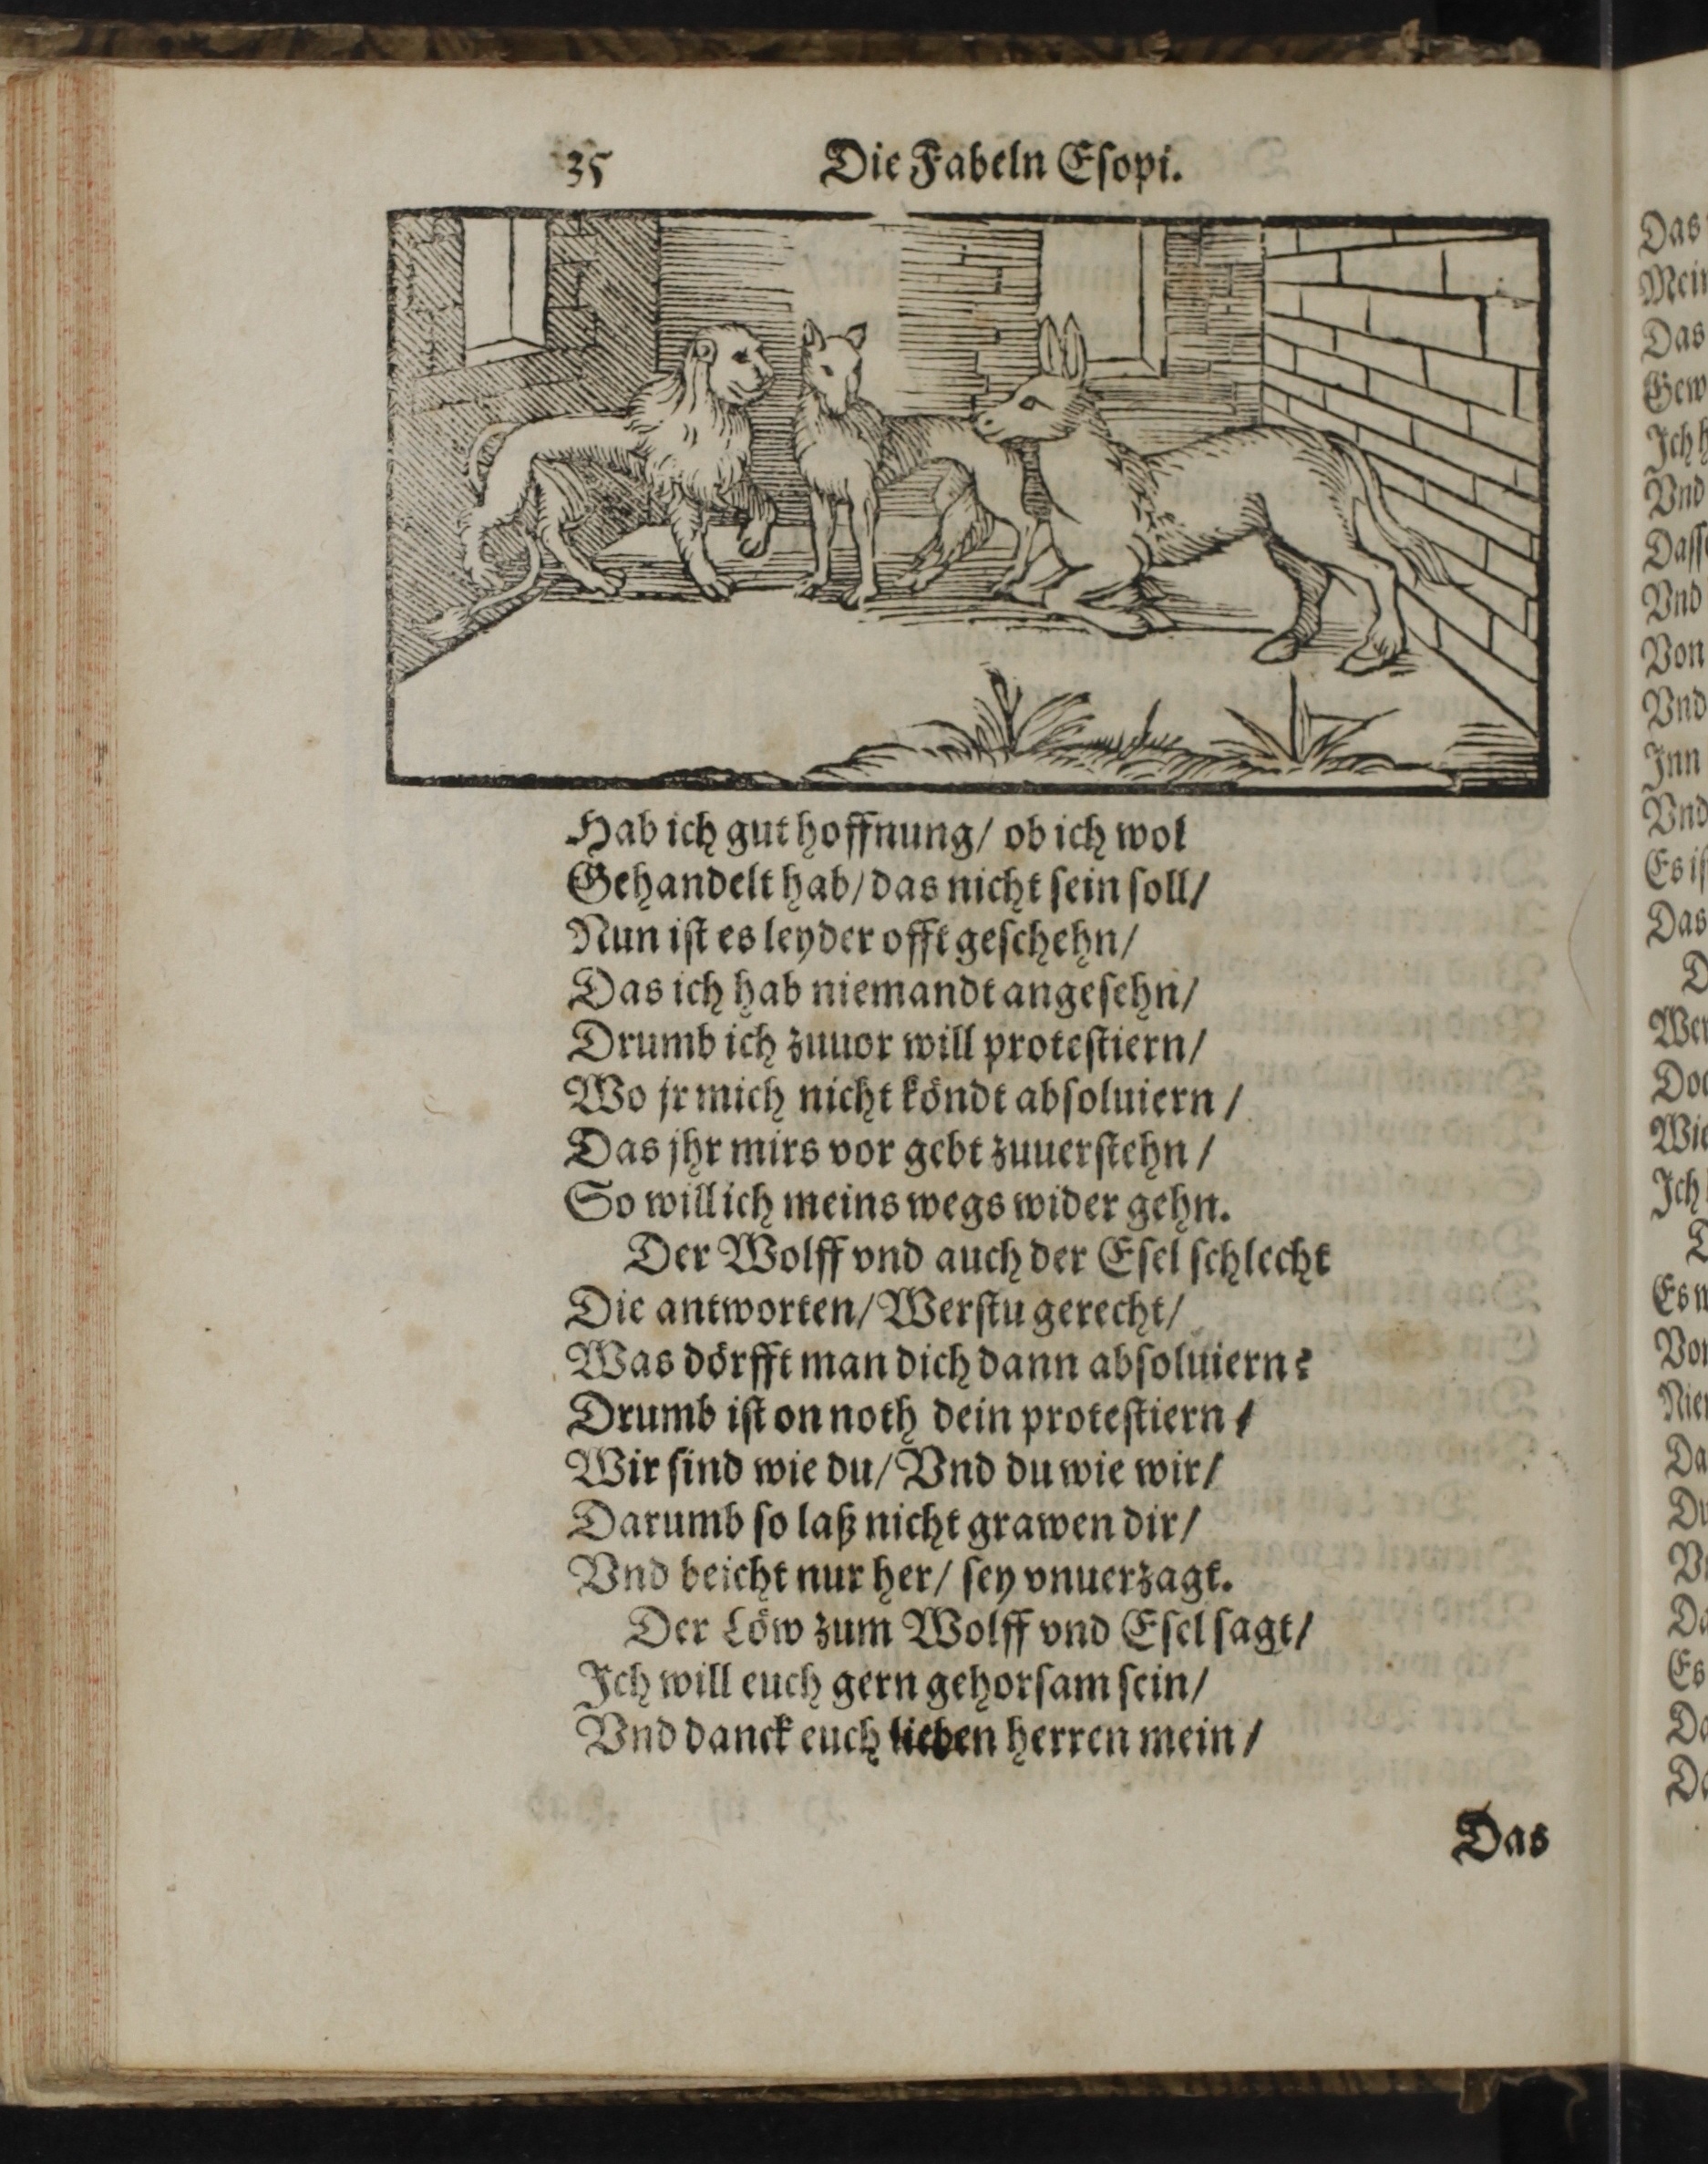 35 Die Fabeln Eſopi.
Hab ich gut hoffnung/ ob ich wol
Gehandelt hab/ das nicht ſein ſoll/
Nun iſt es leyder offt geſchehn/
Das ich hab niemandt angeſehn/
Drumb ich zuuor will proteſtiern/
Wo jr mich nicht köndt abſoluiern/
Das jhr mirs vor gebt zuuerſtehn/
So will ich meins wegs wider gehn.
Der Wolff vnd auch der Eſel ſchlecht
Die antworten/ Werſtu gerecht/
Was dörfft man dich dann abſoluiern?
Drumb iſt on noth dein proteſtiern/
Wir ſind wie du/ Vnd du wie wir/
Darumb ſo laß nicht grawen dir/
Vnd beicht nur her/ ſey vnuerzagt.
Der Löw zum Wolff vnd Eſel ſagt/
Ich will euch gern gehorſam ſein/
Vnd danck euch lieben herren mein/
Das
Das
Das
Vnd
Vnd
Von
Vnd
Inn
Vnd
Das
Ich